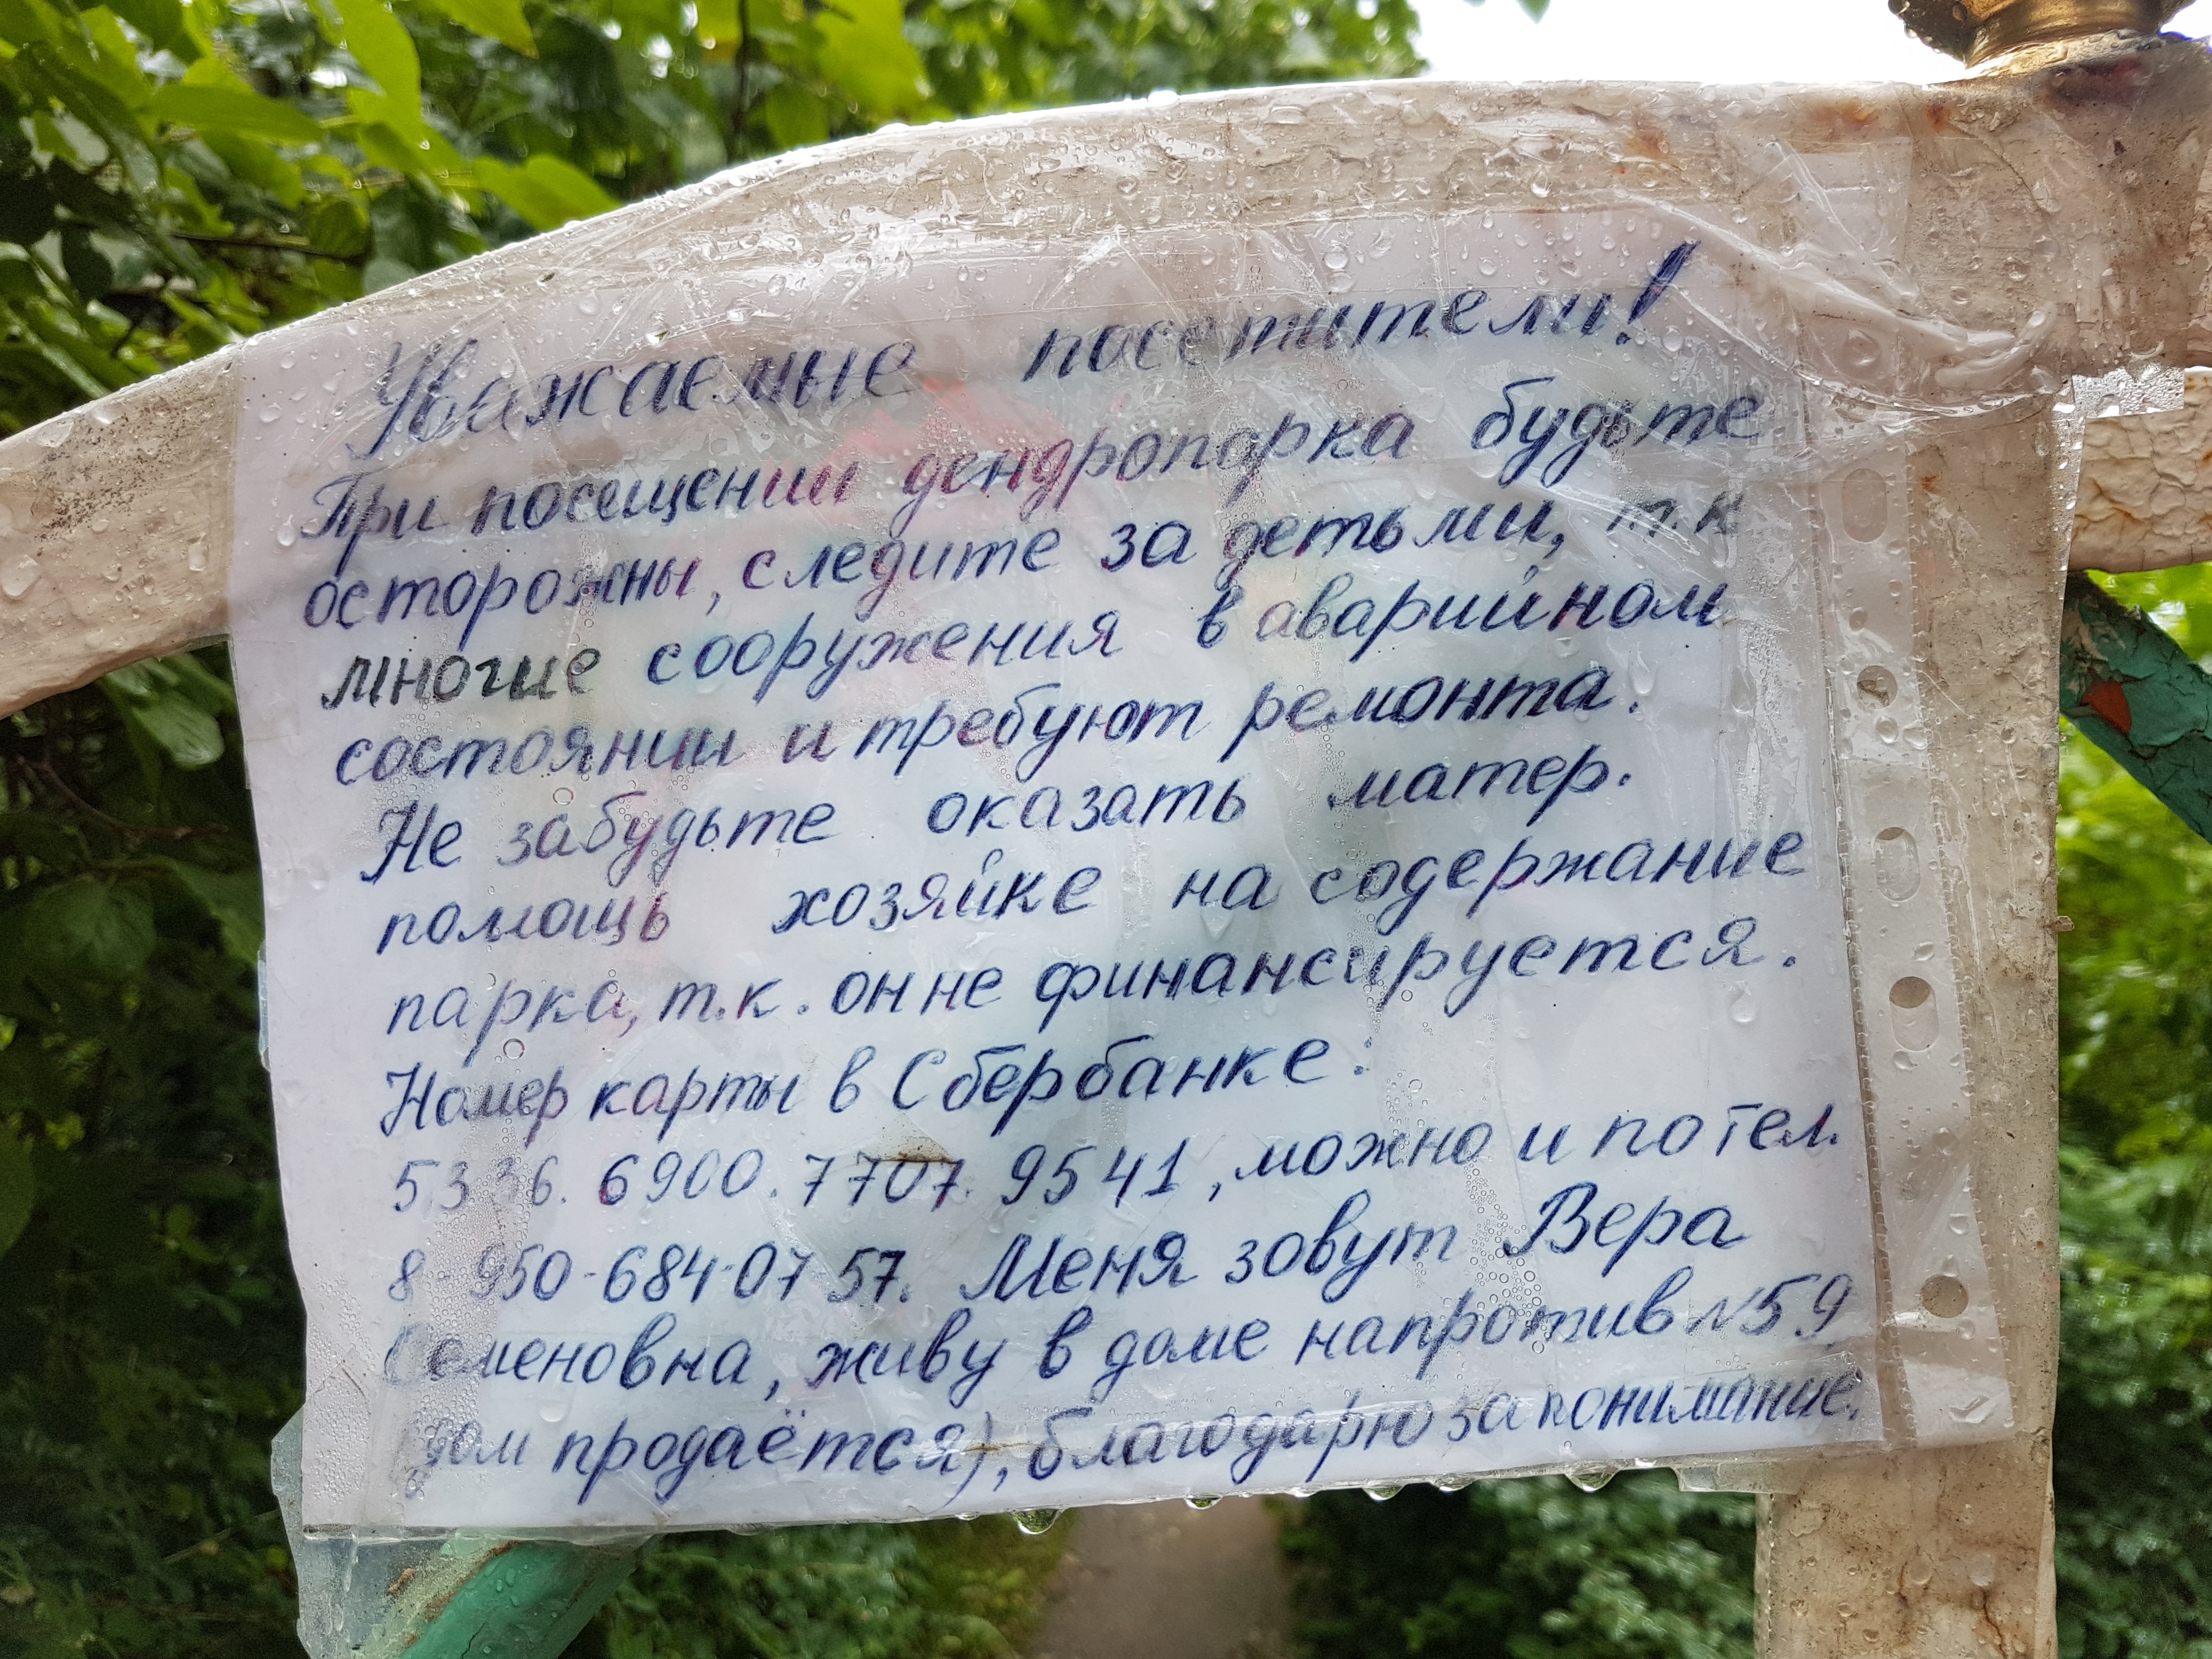 Уважаемые посетители!
При посещении дендропарка будьте
осторожны, следите за детьми, т.к
многие сооружения в аварийном
состоянии и требуют ремонта.
Не забудьте оказать матер.
помощь хозяйке на содержание
парка, т.к. он не финансируется.
Номер карты в Сбербанке:
5336. 6900. 7707. 9541, можно и по тел.
8 950-684-07 57. Меня зовут Вера
Семеновна, живу в доме напротив №59
(дом продаётся), благодарю за понимание.